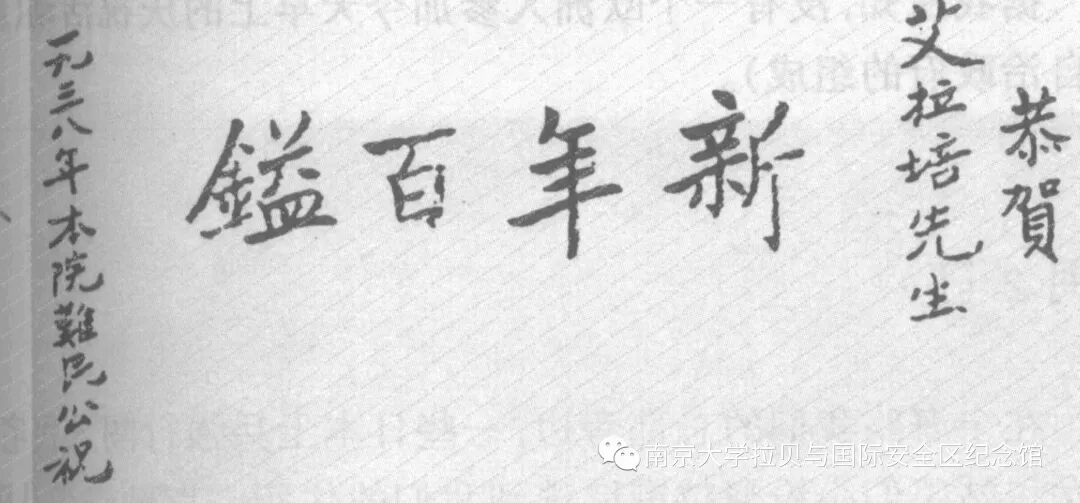 恭賀
艾拉培先生
新年百鎰
一九三八年本院難民公祝
南京大学拉贝与国际安全区纪念馆